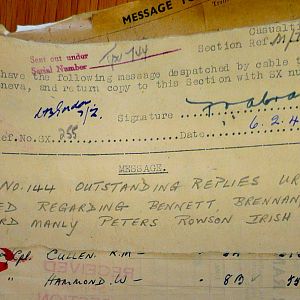 MESSAGE TO
Casualti
Section Ref.
Sent out under
Serial Number
have the following message despatched by cable t
neva, and return copy to this Section with SX nu
Signature
ef.No.GX 255
Date 6.2.4
MESSAGE.
NO.144 OUTSTANDING REPLIES UR
ED REGARDING BENNETT, BRENNAN,
RD MANLY PETERS ROWSON IRISH
Cpl. CULLEN. R.M —
" HAMMOND. W — 8B